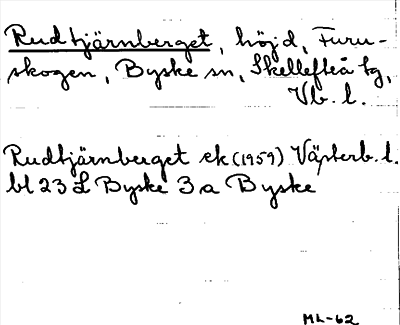 Rudtjärnberget, höjd, Furu-
skogen, Byske sn, Skellefteå tg,
Vb. l.
Rudtjärnberget ek (1959) Västerb. l.
bl 23 L Byske 3 a Byske
ML-62